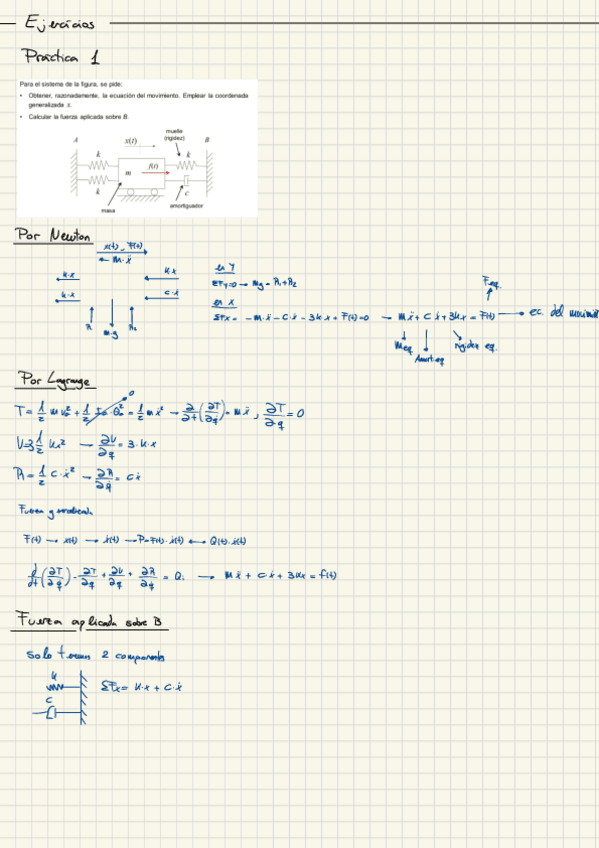 Ejercicios
Práctica 1
Para el sistema de la figura, se pide:
• Obtener, razonadamente, la ecuación del movimiento. Emplear la coordenada
generalizada x.
• Calcular la fuerza aplicada sobre B.
muelle
(rigidez)
A
x(t)
B
k
f(t)
k
m
k
c
masa
amortiguador
Por Newton
x(t), F(t)
m·ẍ
k·x
k·x
k·x
c·ẋ
m·g
R₂
en Y
ΣFy=0 → mg = R₁+R₂
en X
ΣFx = -m·ẍ - C·ẋ - 3k·x + F(t)=0 → mẍ + Cẋ + 3kx = F(t) → ec. del
Feq.
Meq
Amort.eq
rigidez eq.
Por Lagrange
T = 1/2 m v₀² + 1/2 I₀·θ₀² = 1/2 m ẋ² → ∂/∂t (∂T/∂q̇) = mẍ, ∂T/∂q = 0
0
V = 3 1/2 kx² → ∂V/∂q = 3·k·x
R = 1/2 C·ẋ² → ∂R/∂q̇ = cẋ
Fuerza generalizada
F(t) → x(t) → ẋ(t) → P=F(t)·ẋ(t) ↔ Q(t)·ẋ(t)
d/dt (∂T/∂q̇) - ∂T/∂q + ∂V/∂q + ∂R/∂q̇ = Qᵢ → mẍ + cẋ + 3kx = f(t)
Fuerza aplicada sobre B
Solo tenemos 2 componentes
k
C
ΣFx = k·x + c·ẋ